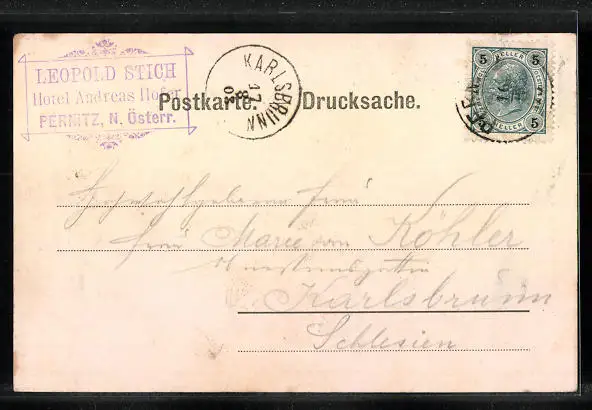 LEOPOLD STICH
Hotel Andreas Hofer
PERNITZ, N. Österr.
KARLSBRUNN
17
8
Postkarte. Drucksache.
5 HELLER 5
HELLER 5
Hochwohlgeborene Frau
Frau Marie von Köhler
Karlsbrunn
Schlesien